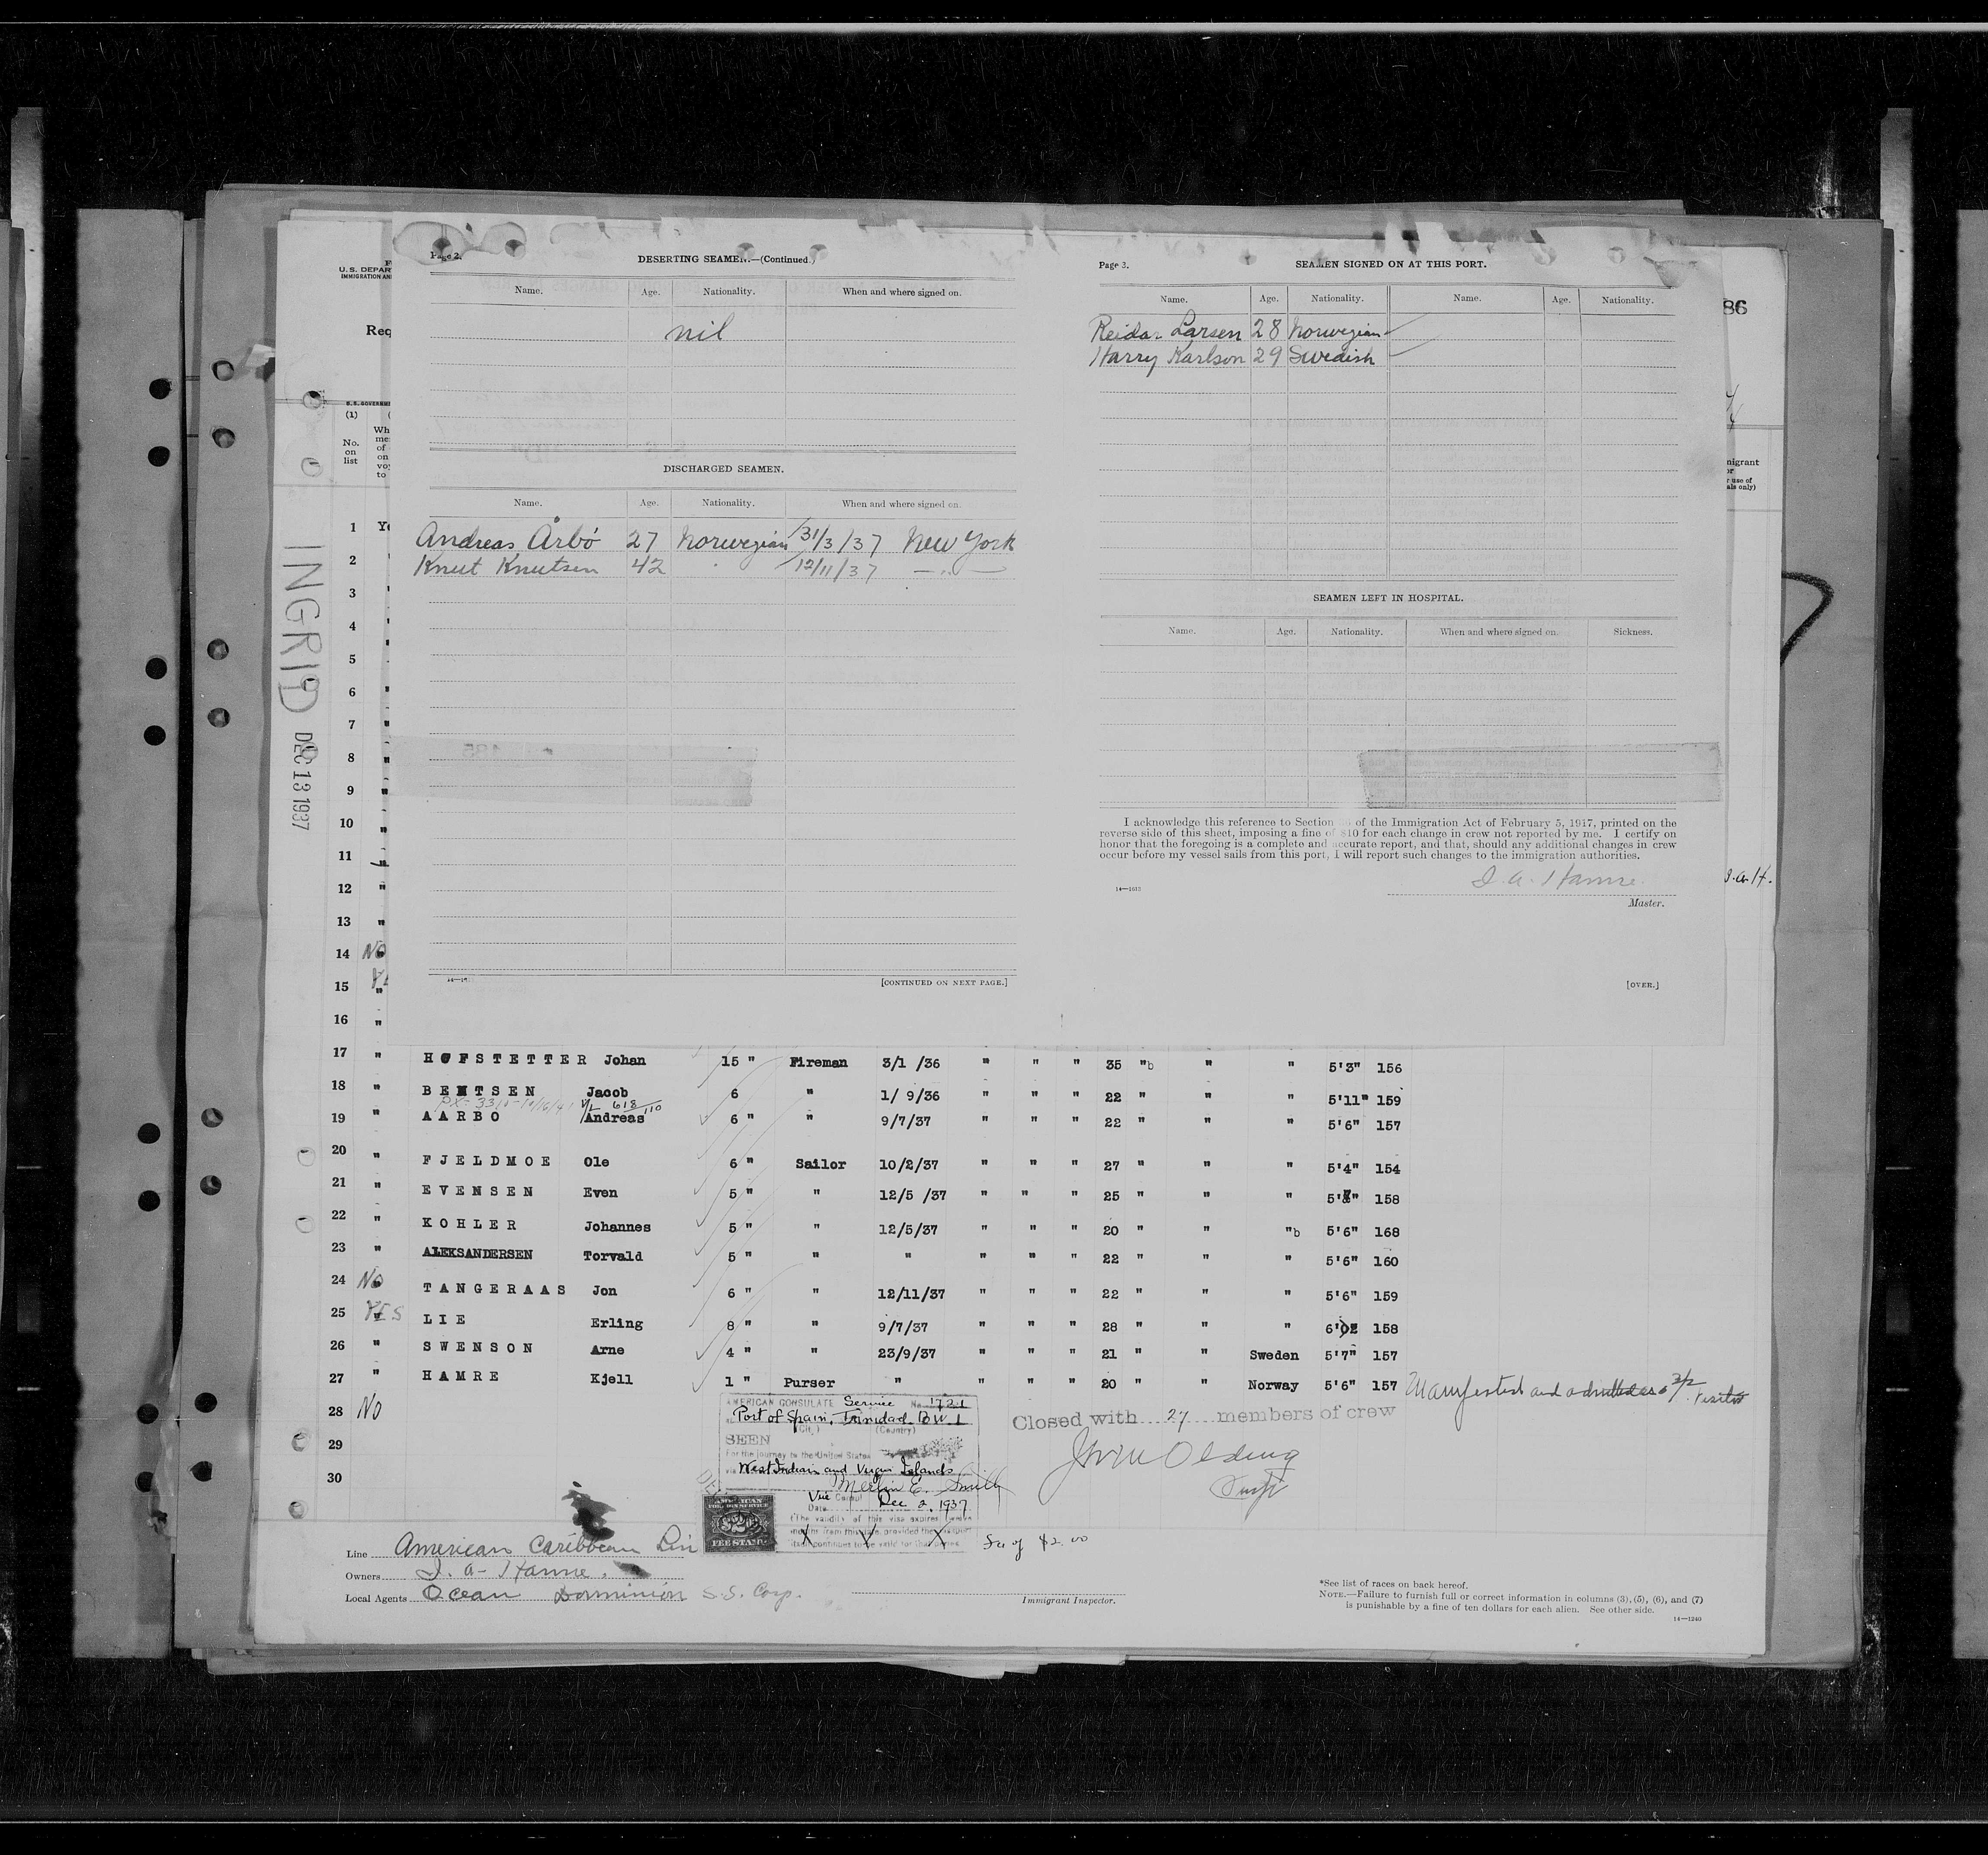 Page 2.
DESERTING SEAMEN.—(Continued.)
Name. Age. Nationality. When and where signed on.
nil
DISCHARGED SEAMEN.
Name. Age. Nationality. When and where signed on.
Andreas Årbö 27 Norwegian 31/3/37 New York
Knut Knutsen 42 " 12/11/37 —"—
[CONTINUED ON NEXT PAGE.]
Page 3.
SEAMEN SIGNED ON AT THIS PORT.
Name. Age. Nationality. Name. Age. Nationality.
Reidar Larsen 28 Norwegian
Harry Karlson 29 Swedish
SEAMEN LEFT IN HOSPITAL.
Name. Age. Nationality. When and where signed on. Sickness.
I acknowledge this reference to Section of the Immigration Act of February 5, 1917, printed on the
reverse side of this sheet, imposing a fine of $10 for each change in crew not reported by me. I certify on
honor that the foregoing is a complete and accurate report, and that, should any additional changes in crew
occur before my vessel sails from this port, I will report such changes to the immigration authorities.
14—1612
Master.
[OVER.]
U.S. DEPAR
IMMIGRATION AN
Req
86
U.S. GOVERNM
(1)
No.
on
list
Wh
me
of
on
voy
to
migrant
or
r use of
als only)
INGRID
DEC 13 1937
1 Y
2 "
3 "
4 "
5
6 "
7 "
8 "
9 "
10 "
11 "
12 "
13 "
14 No
15 "
16 "
17 " HOFSTETTER Johan 15 " Fireman 3/1 /36 " " " 35 "b " " 5'3" 156
18 " BENTSEN Jacob 6 " 1/ 9/36 22 " " " 5'11" 159
19 " AARBO Andreas 6 " " 9/7/37 " " " 22 " " " 5'6" 157
20 " FJELDMOE Ole 6 " Sailor 10/2/37 " " " 27 " " " 5'4" 154
21 " EVENSEN Even 5 " " 12/5 /37 " " " 25 " " " 158
22 " KOHLER Johannes 5 " " 12/5/37 " " " 20 " " "b 5'6" 168
23 " ALEKSANDERSEN Torvald 5 " " " " " " 22 " " " 5'6" 160
24 No TANGERAAS Jon 6 " " 12/11/37 " " " 22 " " " 5'6" 159
25 YES LIE Erling 8 " " 9/7/37 " " " 28 " " " 158
26 " SWENSON Arne 4 " " 23/9/37 " " " 21 " " Sweden 5'7" 157
27 " HAMRE Kjell 1 " Purser " " " " 20 " " Norway 5'6" 157 Manifested and admitted as a 3/2 Visitor
28 No
29
30
AMERICAN CONSULATE Service No. 1721
Port of Spain, Trinidad BWI
(City) (Country)
SEEN
For the journey to the United States
via West Indian and Virgin Islands
Merlin E. Smith
Vice Consul
Date Dec 2, 1937
(The validity of this visa expires twelve
months from this date, provided the passport
AMERICAN
FOREIGN SERVICE
$2
FEE STAMP
Fee of $2.00
Closed with 27 members of crew
Line American Caribbean Lin
Owners
Local Agents Ocean Dominion S.S. Corp.
Immigrant Inspector.
*See list of races on back hereof.
NOTE.—Failure to furnish full or correct information in columns (3), (5), (6), and (7)
is punishable by a fine of ten dollars for each alien. See other side.
14—1240